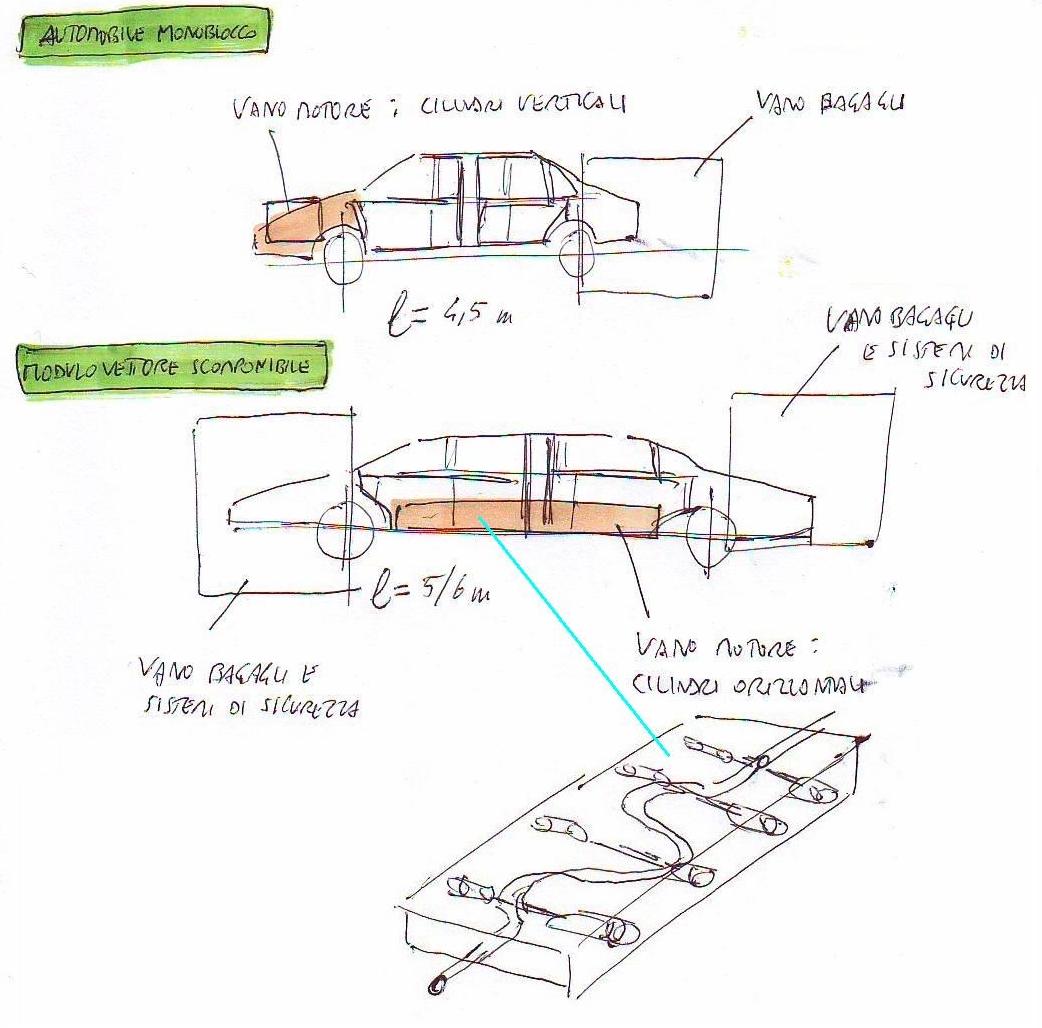 AUTOMOBILE MONOBLOCCO
VANO MOTORE : CILINDRI VERTICALI
VANO BAGAGLI
l = 4,5 m
VANO BAGAGLI
E SISTEMI DI
SICUREZZA
MODULO VETTORE SCOMPONIBILE
l = 5/6 m
VANO MOTORE :
CILINDRI ORIZZONTALI
VANO BAGAGLI E
SISTEMI DI SICUREZZA